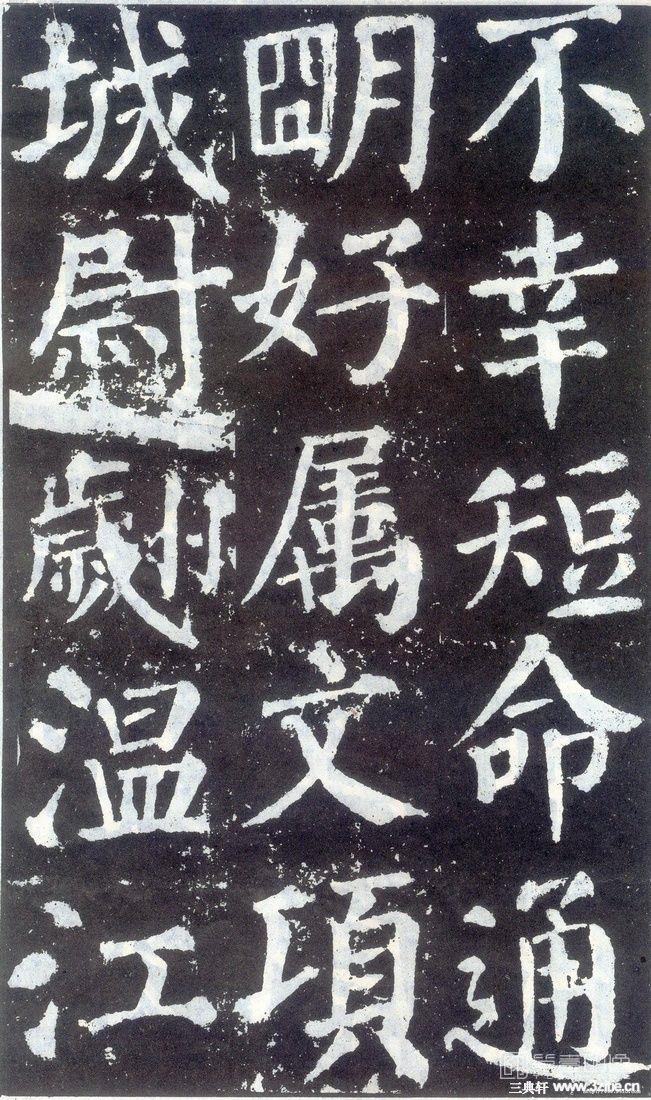 不幸短命通
朙好属文項
城尉翽温江
三典轩 www.3zitie.cn